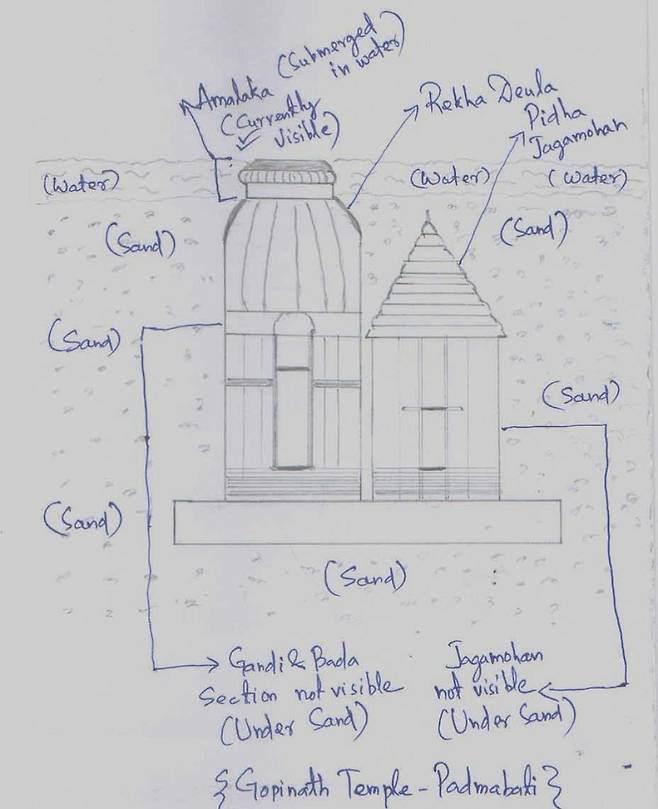 Amalaka (Submerged
in water)
(Currently
Visible)
Rekha Deula
Pidha
Jagamohan
(Water)
(Water)
(Water)
(Sand)
(Sand)
(Sand)
(Sand)
(Sand)
(Sand)
Gandi & Bada
Section not visible
(Under Sand)
Jagamohan
not visible
(Under Sand)
{Gopinath Temple - Padmabati}